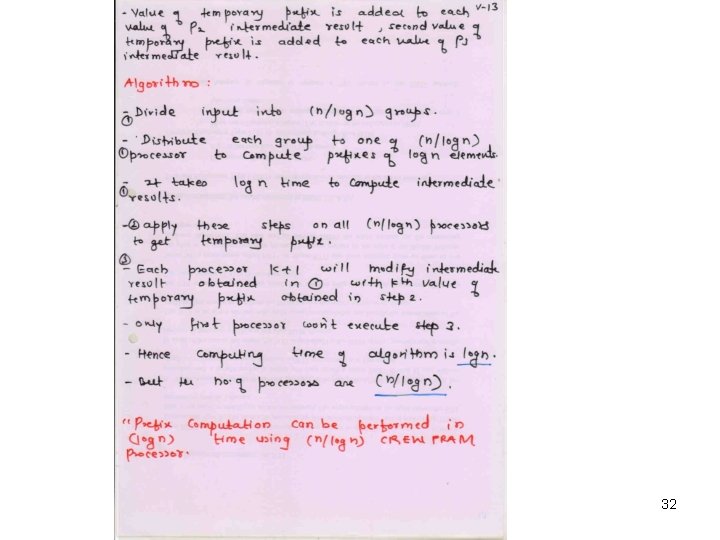 V-13
- Value of temporary prefix is added to each
value of P2 intermediate result, second value of
temporary prefix is added to each value of P3
intermediate result.
Algorithm :
- Divide input into (n/logn) groups.
①
- Distribute each group to one of (n/logn)
① processor to compute prefixes of logn elements.
- It takes logn time to compute intermediate
① results.
- ② apply these steps on all (n/logn) processors
to get temporary prefix.
③
- Each processor K+1 will modify intermediate
result obtained in ① with Kth value of
temporary prefix obtained in step 2.
- only first processor won't execute step 3.
- Hence computing time of algorithm is logn.
- But the no. of processors are (n/logn).
"Prefix Computation can be performed in
(logn) time using (n/logn) CREW PRAM
Processor.
32